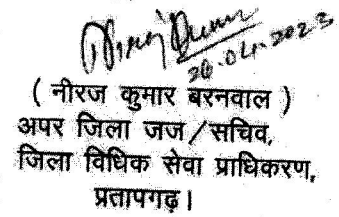 Niraj Kumar
26.04.2023
( नीरज कुमार बरनवाल )
अपर जिला जज/सचिव,
जिला विधिक सेवा प्राधिकरण,
प्रतापगढ़।